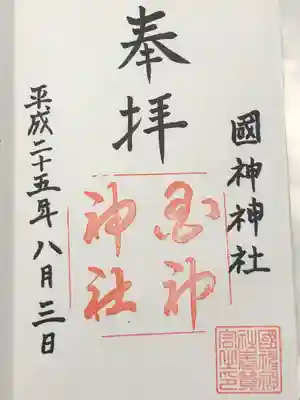 國神神社
奉拝
国神
神社
平成二十五年八月三日